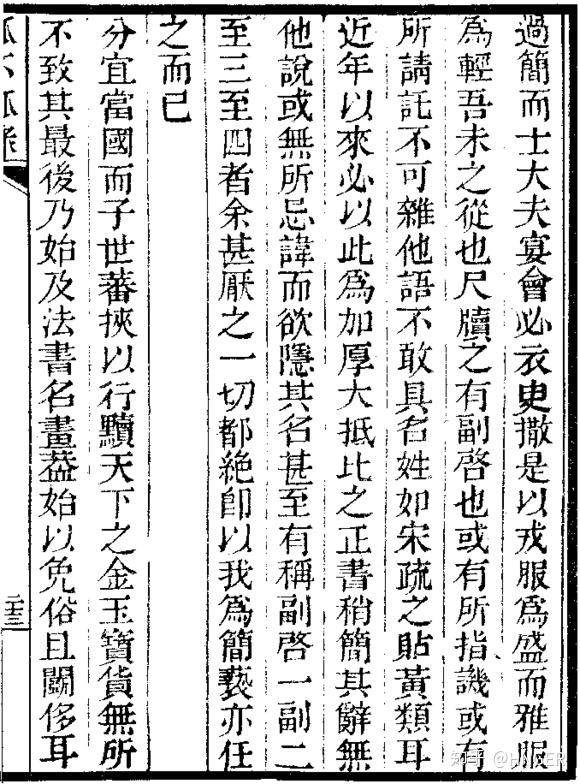 過簡而士大夫宴會必衣曳撒是以戎服爲盛而雅服
爲輕吾未之從也尺牘之有副啓也或有所指譏或有
所請託不可雜他語不敢具名姓如宋疏之貼黃類耳
近年以來必以此爲加厚大抵比之正書稍簡其辭無
他說或無所忌諱而欲隱其名甚至有稱副啓一副二
至三至四者余甚厭之一切都絶卽以我爲簡褻亦任
之而已
分宜當國而子世蕃挾以行黷天下之金玉寶貨無所
不致其最後乃始及法書名畫葢始以免俗且鬭侈耳
觚不觚錄
二十三
知乎 @HNZER